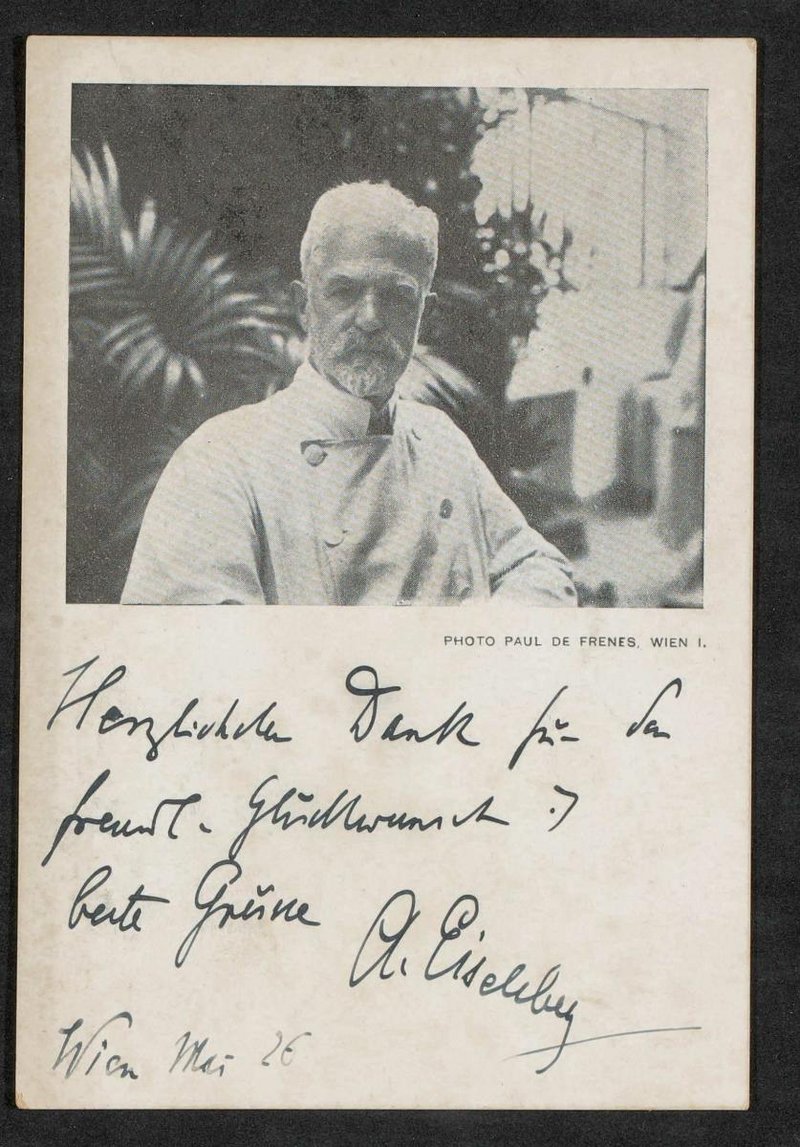 PHOTO PAUL DE FRENES, WIEN I.
Herzlichsten Dank für den
freundl. Glückwunsch &
beste Grüsse
A. Eiselsberg
Wien Mai 26